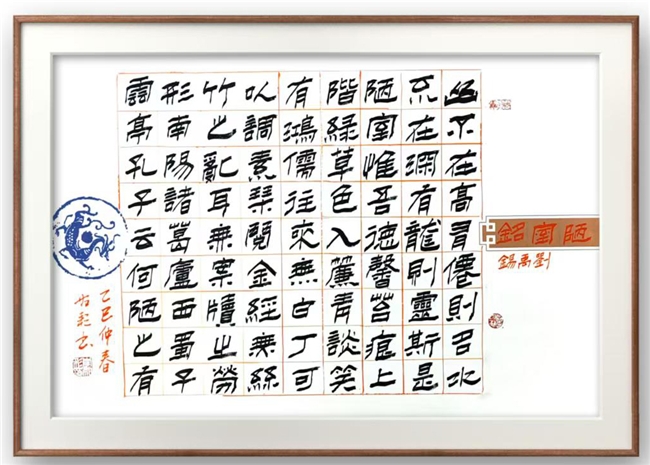 陋室銘
劉禹錫
山不在高有僊則名水
不在深有龍則靈斯是
陋室惟吾德馨苔痕上
階緑草色入簾青談笑
有鴻儒往來無白丁可
以調素琴閱金經無絲
竹之亂耳無案牘之勞
形南陽諸葛廬西蜀子
雲亭孔子云何陋之有
乙巳仲春